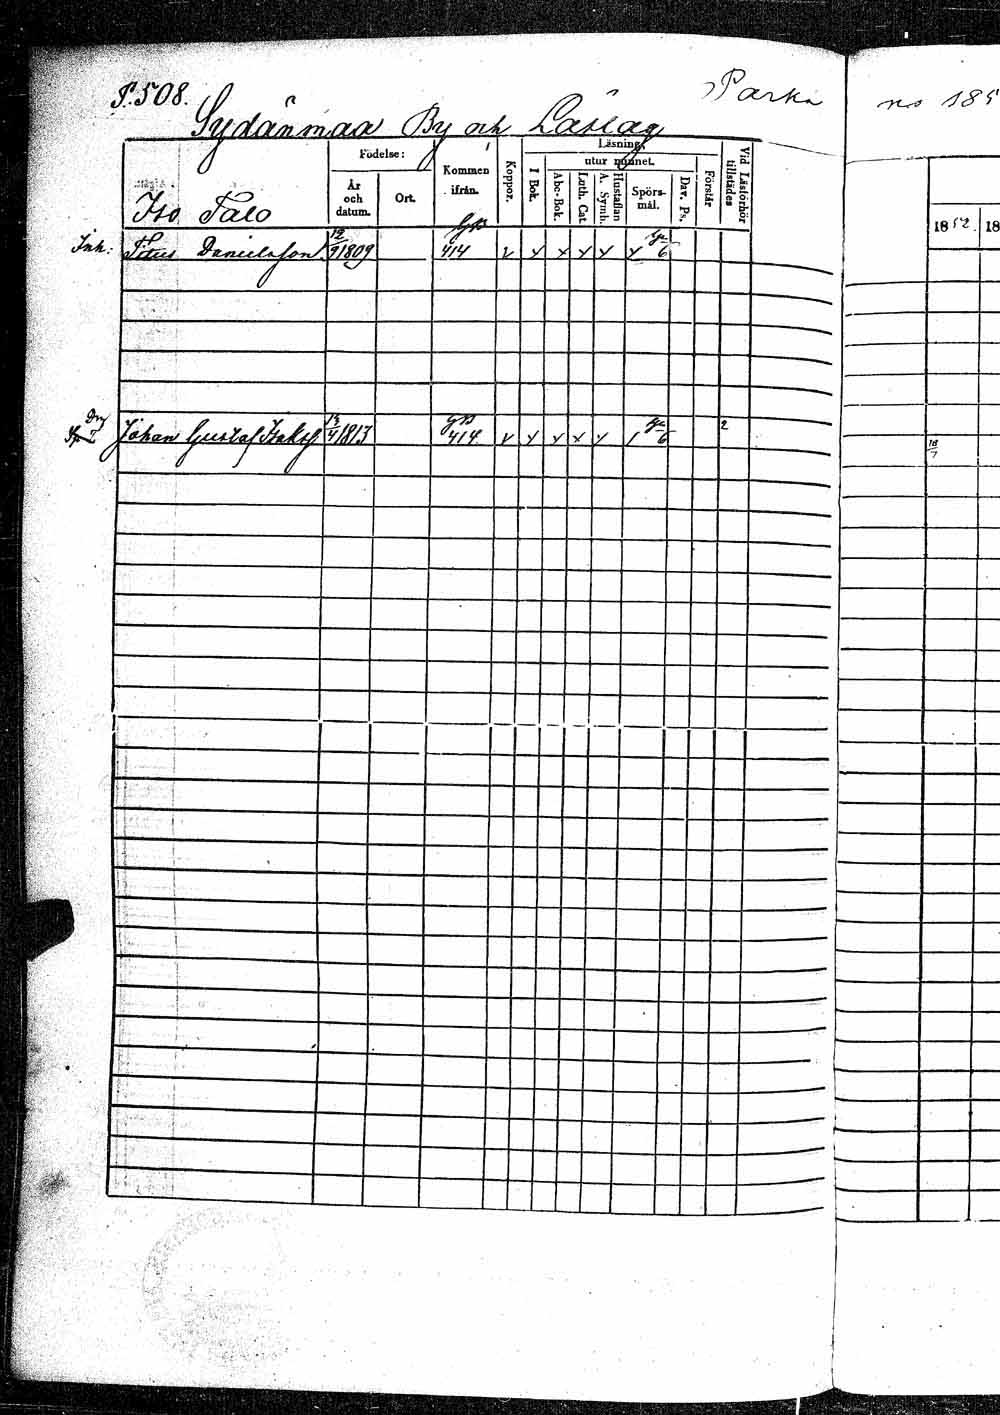 P. 508.
Parka
no 185
Sydänmaa By och Läslag
Födelse:
År och datum.
Ort.
Kommen ifrån.
Koppor.
Läsning
I Bok.
utur minnet.
Abc-Bok.
Luth. Cat.
Hustaflan A. Symb.
Spörs-mål.
Dav. Ps.
Förstår
Vid Läsförhör tillstädes
1852. 18
Iso Talo
Inh: Danielsson 12/9 1809 GB 414 v x x x x x 6
Johan Gustaf Isaksf 13/4 1813 GB 414 x x x x x 6 2
18/7